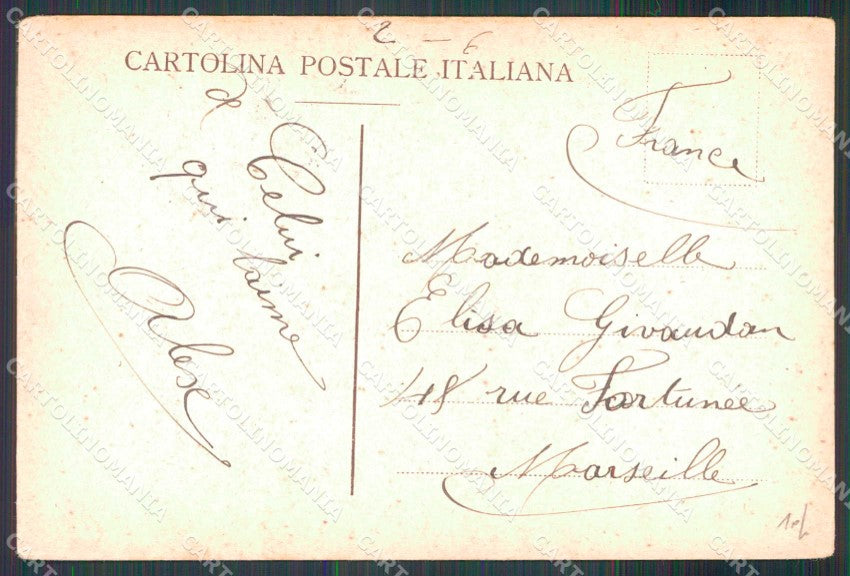 2 - 6
CARTOLINA POSTALE ITALIANA
Celui
qui t'aime
Alex
France
Mademoiselle
Elisa Givaudan
48 rue Fortunée
Marseille
CARTOLINOMANIA